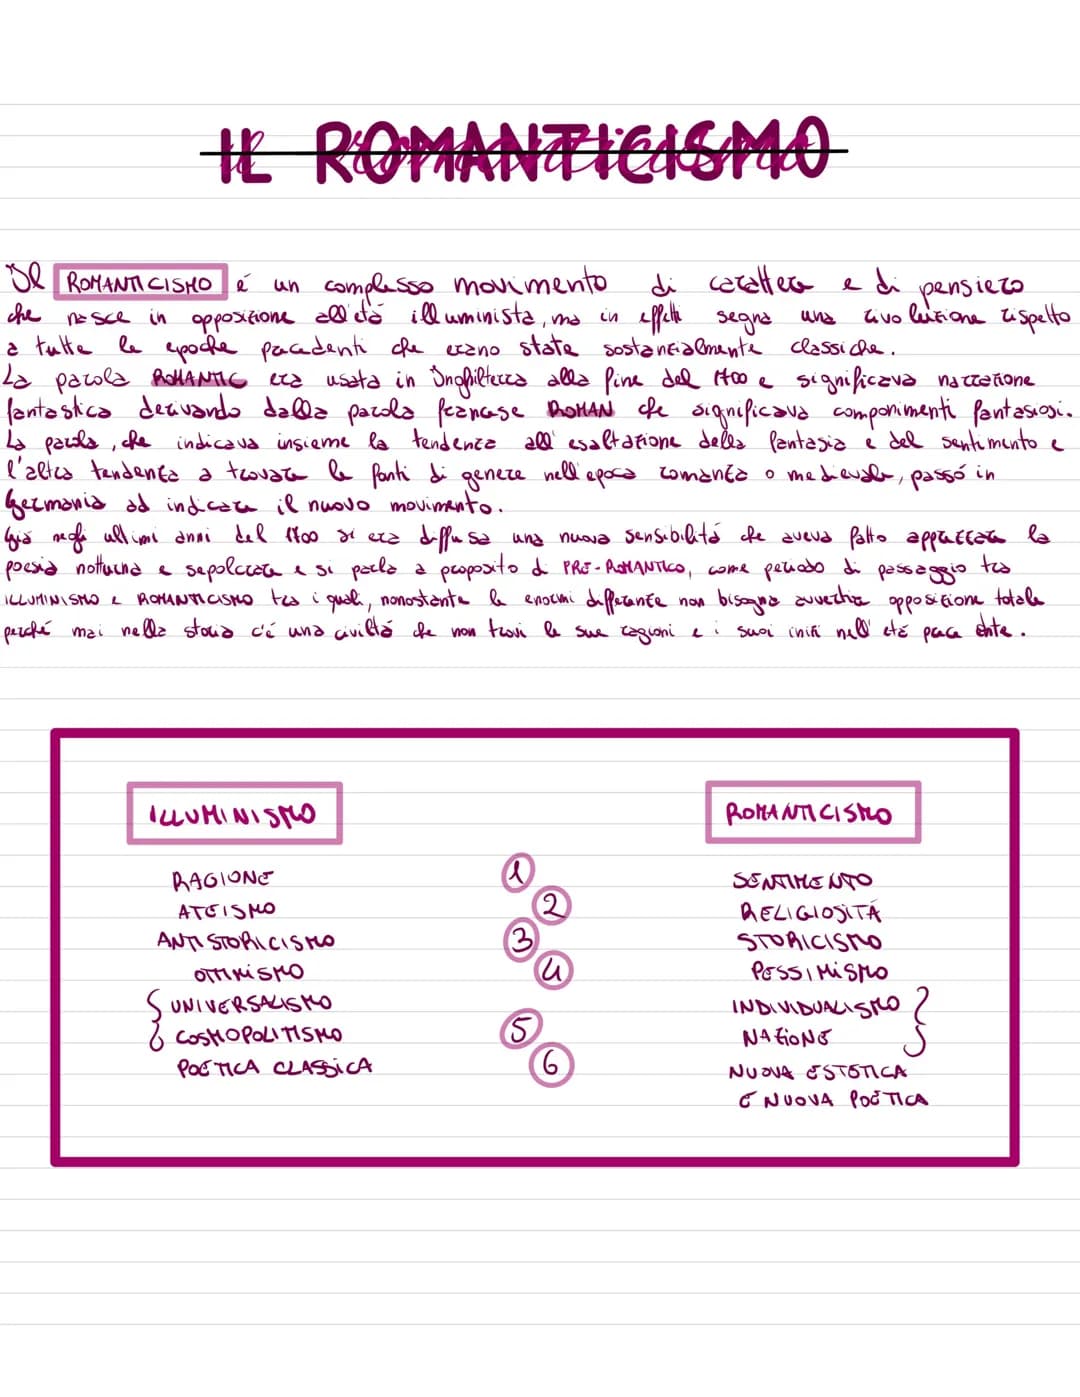 IL ROMANTICISMO
Il ROMANTICISMO é un complesso movimento di carattere e di pensiero
che nasce in opposizione all'etá illuminista, ma in effetti segna una rivoluzione rispetto
a tutte le epoche precedenti che erano state sostanzialmente classiche.
La parola ROMANTIC era usata in Inghilterra alla fine del 1700 e significava narrazione
fantastica derivando dalla parola francese ROMAN che significava componimenti fantasiosi.
La parola, che indicava insieme la tendenza all'esaltazione della fantasia e del sentimento e
l'altra tendenza a trovare le fonti di genere nell'epoca romanza o medievale, passó in
Germania ad indicare il nuovo movimento.
Giá negli ultimi anni del 1700 si era diffusa una nuova sensibilitá che aveva fatto apprezzare la
poesia notturna e sepolcrale e si parla a proposito di PRE-ROMANTICO, come periodo di passaggio tra
ILLUMINISMO e ROMANTICISMO tra i quali, nonostante le enormi differenze non bisogna avvertire opposizione totale
perché mai nella storia c'é una civiltá che non trovi le sue ragioni e i suoi inizi nell'etá precedente.
ILLUMINISMO ROMANTICISMO
RAGIONE 1 SENTIMENTO
ATEISMO 2 RELIGIOSITÁ
ANTISTORICISMO 3 STORICISMO
OTTIMISMO 4 PESSIMISMO
{ UNIVERSALISMO INDIVIDUALISMO }
COSMOPOLITISMO 5 NAZIONE
POETICA CLASSICA 6 NUOVA ESTETICA
E NUOVA POETICA